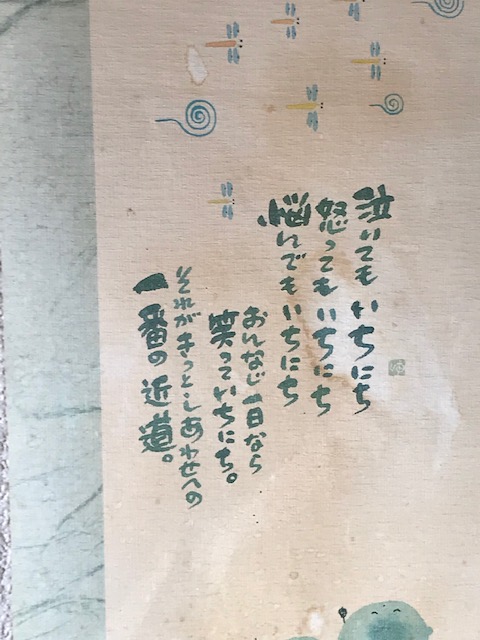 泣いてもいちにち
怒ってもいちにち
悩んでもいちにち
おんなじ一日なら
笑っていちにち。
それがきっとしあわせへの
一番の近道。